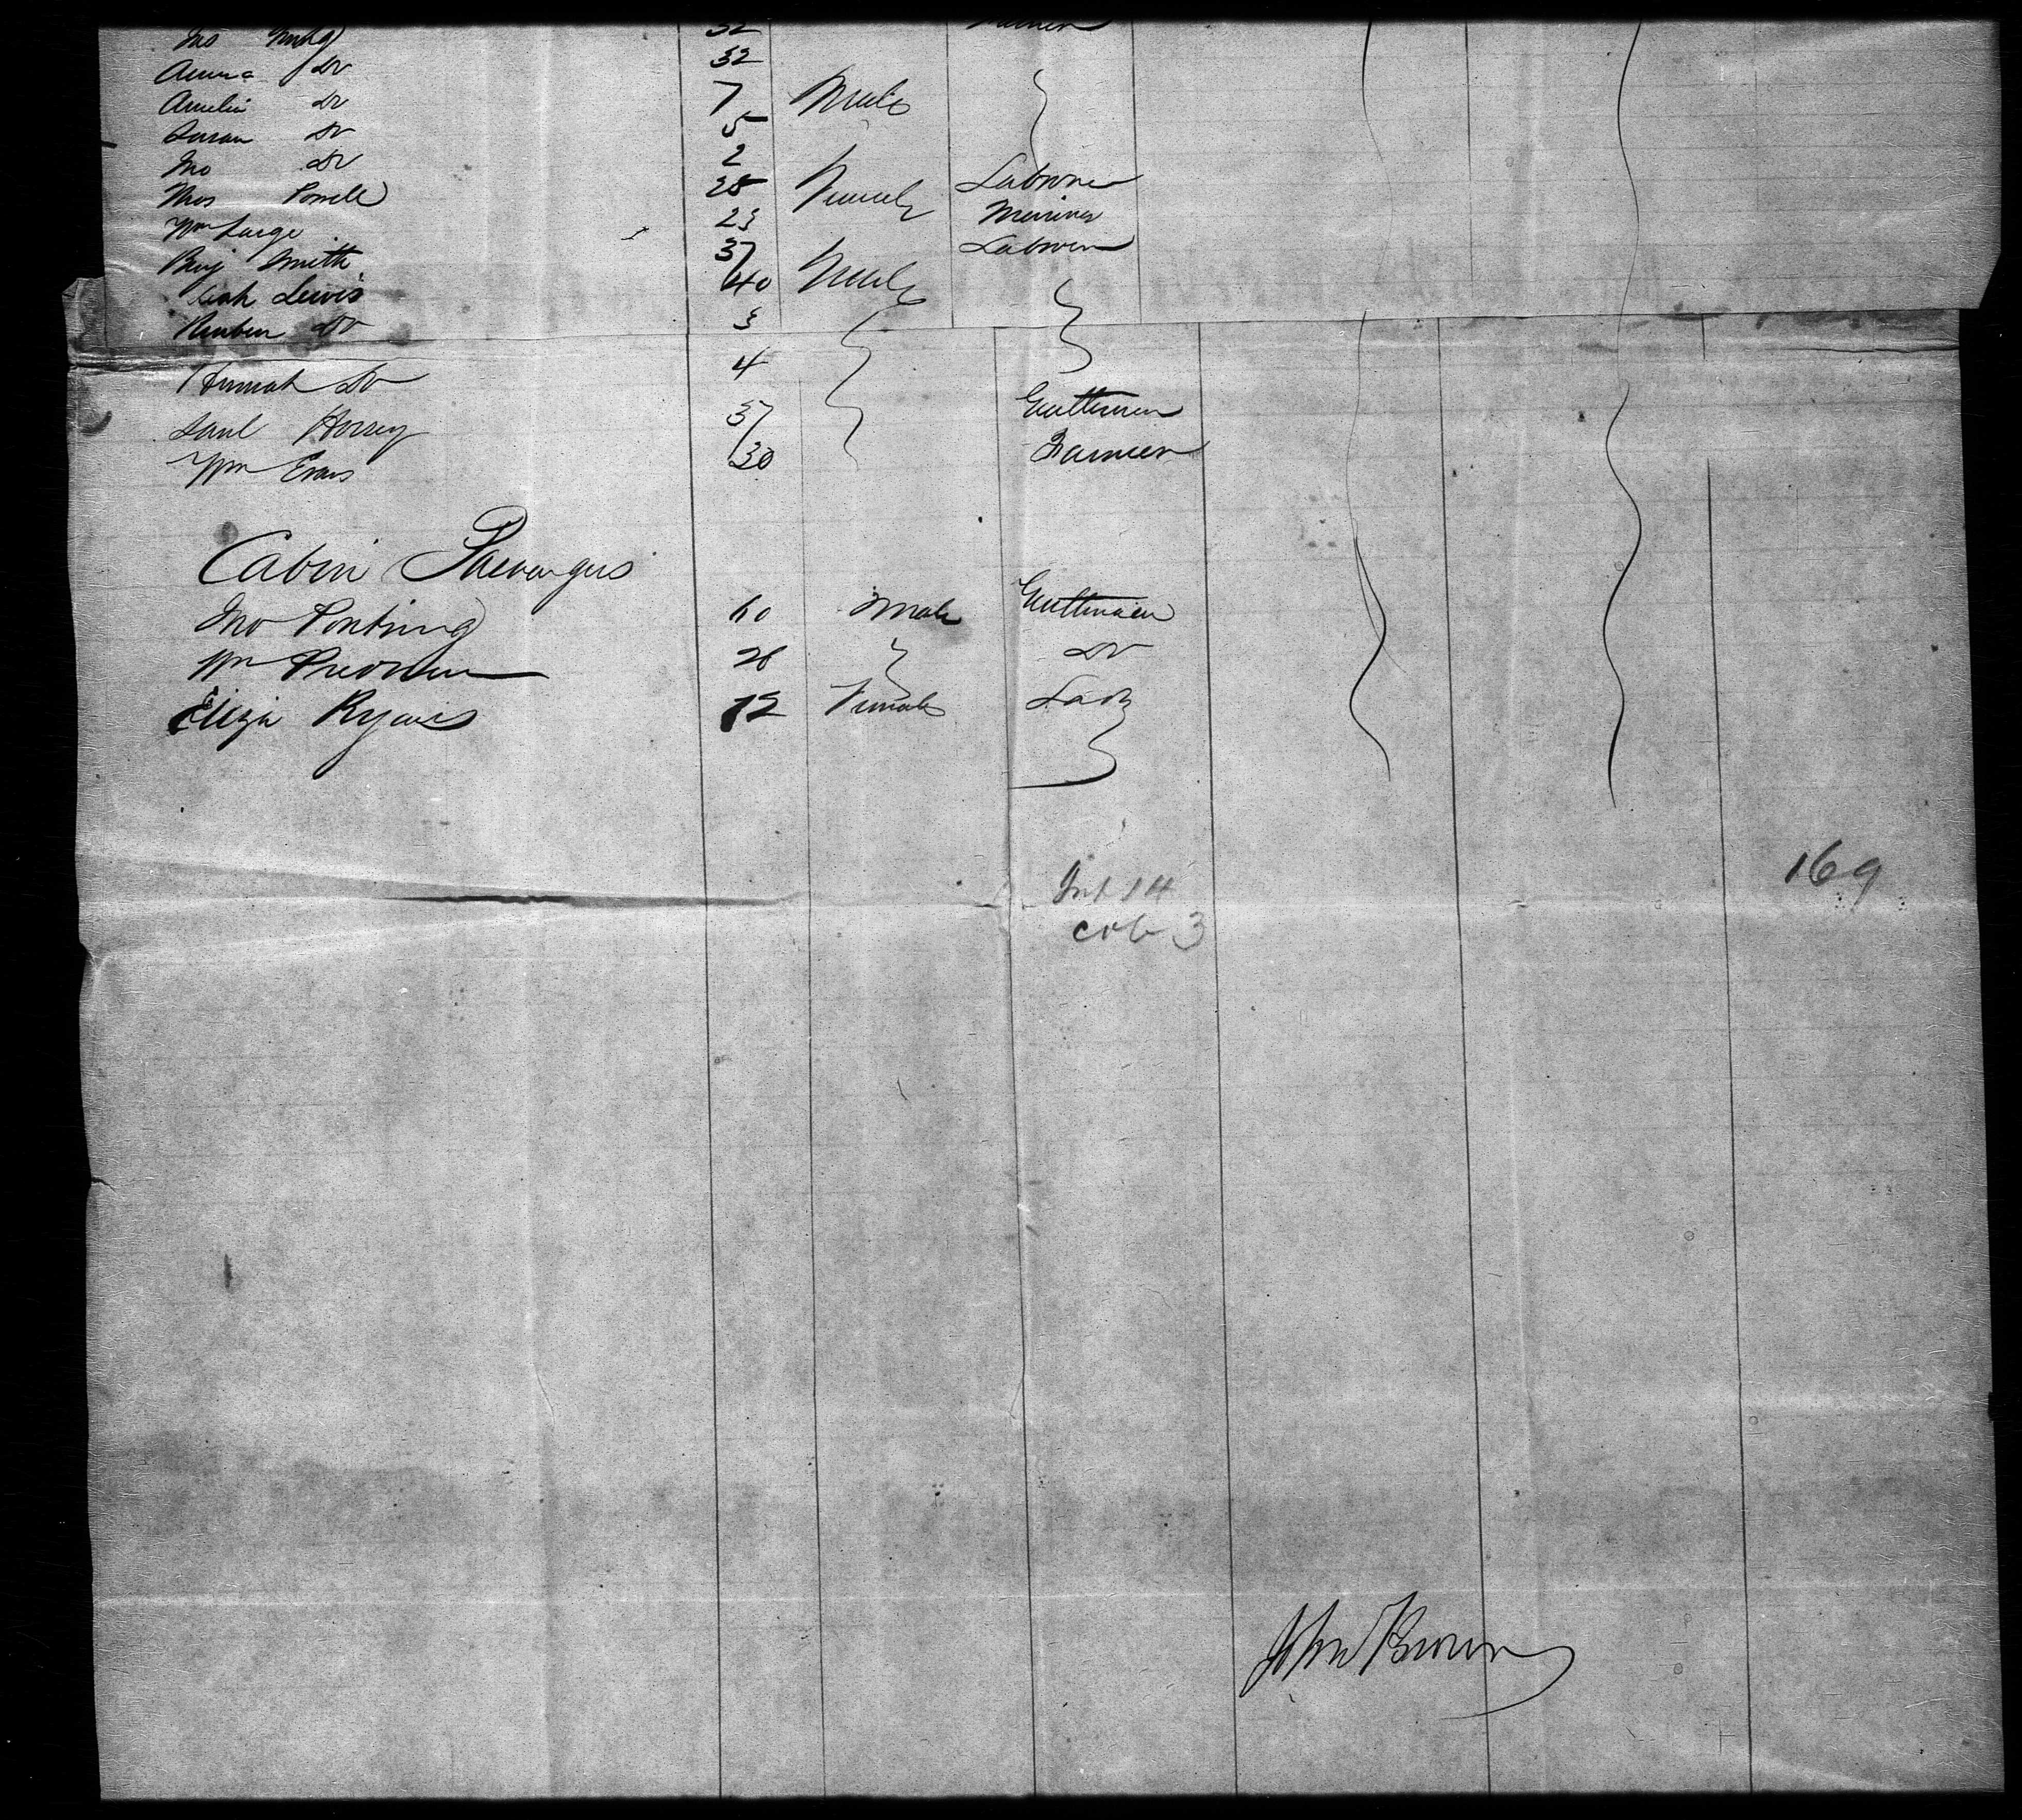 Jno 32
Anna Do 32
Amelia Do 7 Male
Sarah Do 5
Jno Do 2
Thos Powell 28 Female Labourer
Wm Large 23 Mariner
Benj Smith 37 Labourer
Lewis 40 Male
Reuben Do 3
Hannah Do 4
Saml Horsey 37 Gentleman
Wm Evans 30 Farmer
Cabin Passengers
Jno Ponting 60 Male Gentleman
Wm 26 Do
Eliza Ryans 12 Female Lady
169
14
cab 3
John Brown